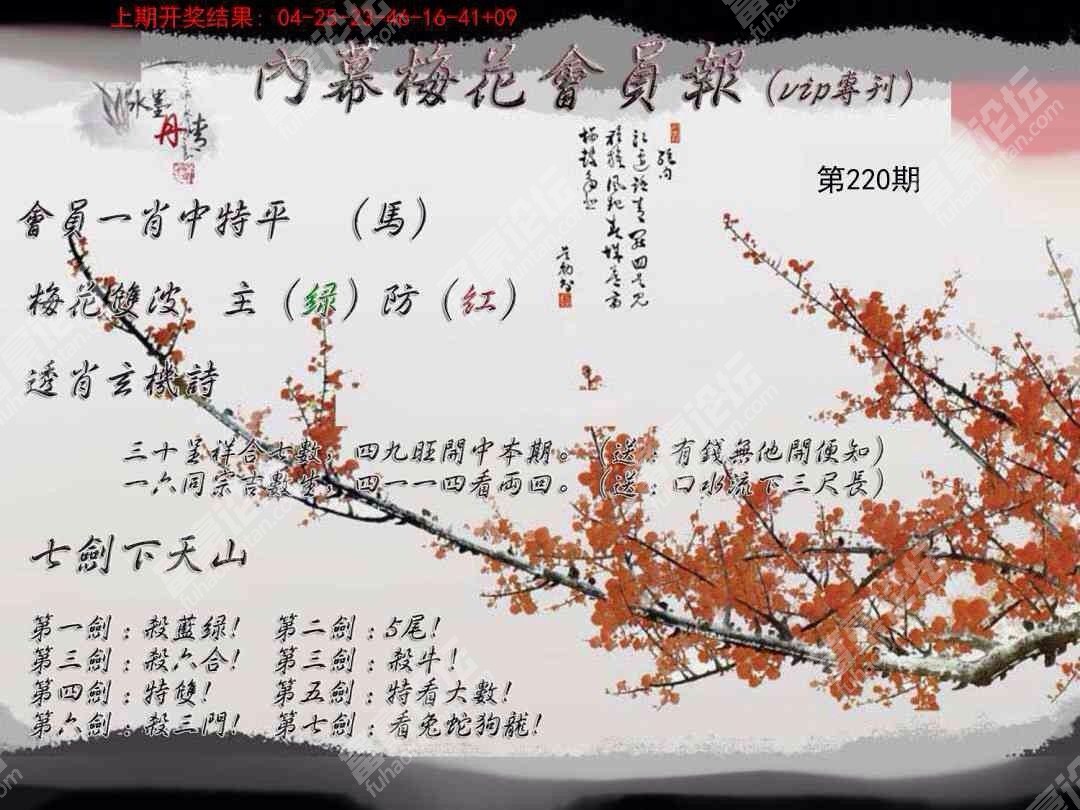 上期开奖结果：04-25-23-46-16-41+09
內幕梅花會員報（vip專刊）
水墨丹青
第220期
會員一肖中特平 （馬）
梅花雙波 主（绿）防（红）
透肖玄機詩
三十呈祥合七數，四九旺開中本期。（送：有錢無他開便知）
一六同宗吉數生，四一一四看兩回。（送：口水流下三尺長）
七劍下天山
第一劍：殺藍绿！ 第二劍：5尾！
第三劍：殺六合！ 第三劍：殺牛！
第四劍：特雙！ 第五劍：特看大數！
第六劍：殺三門！ 第七劍：看兔蛇狗龍！
富豪论坛
fuhaoluntan.com